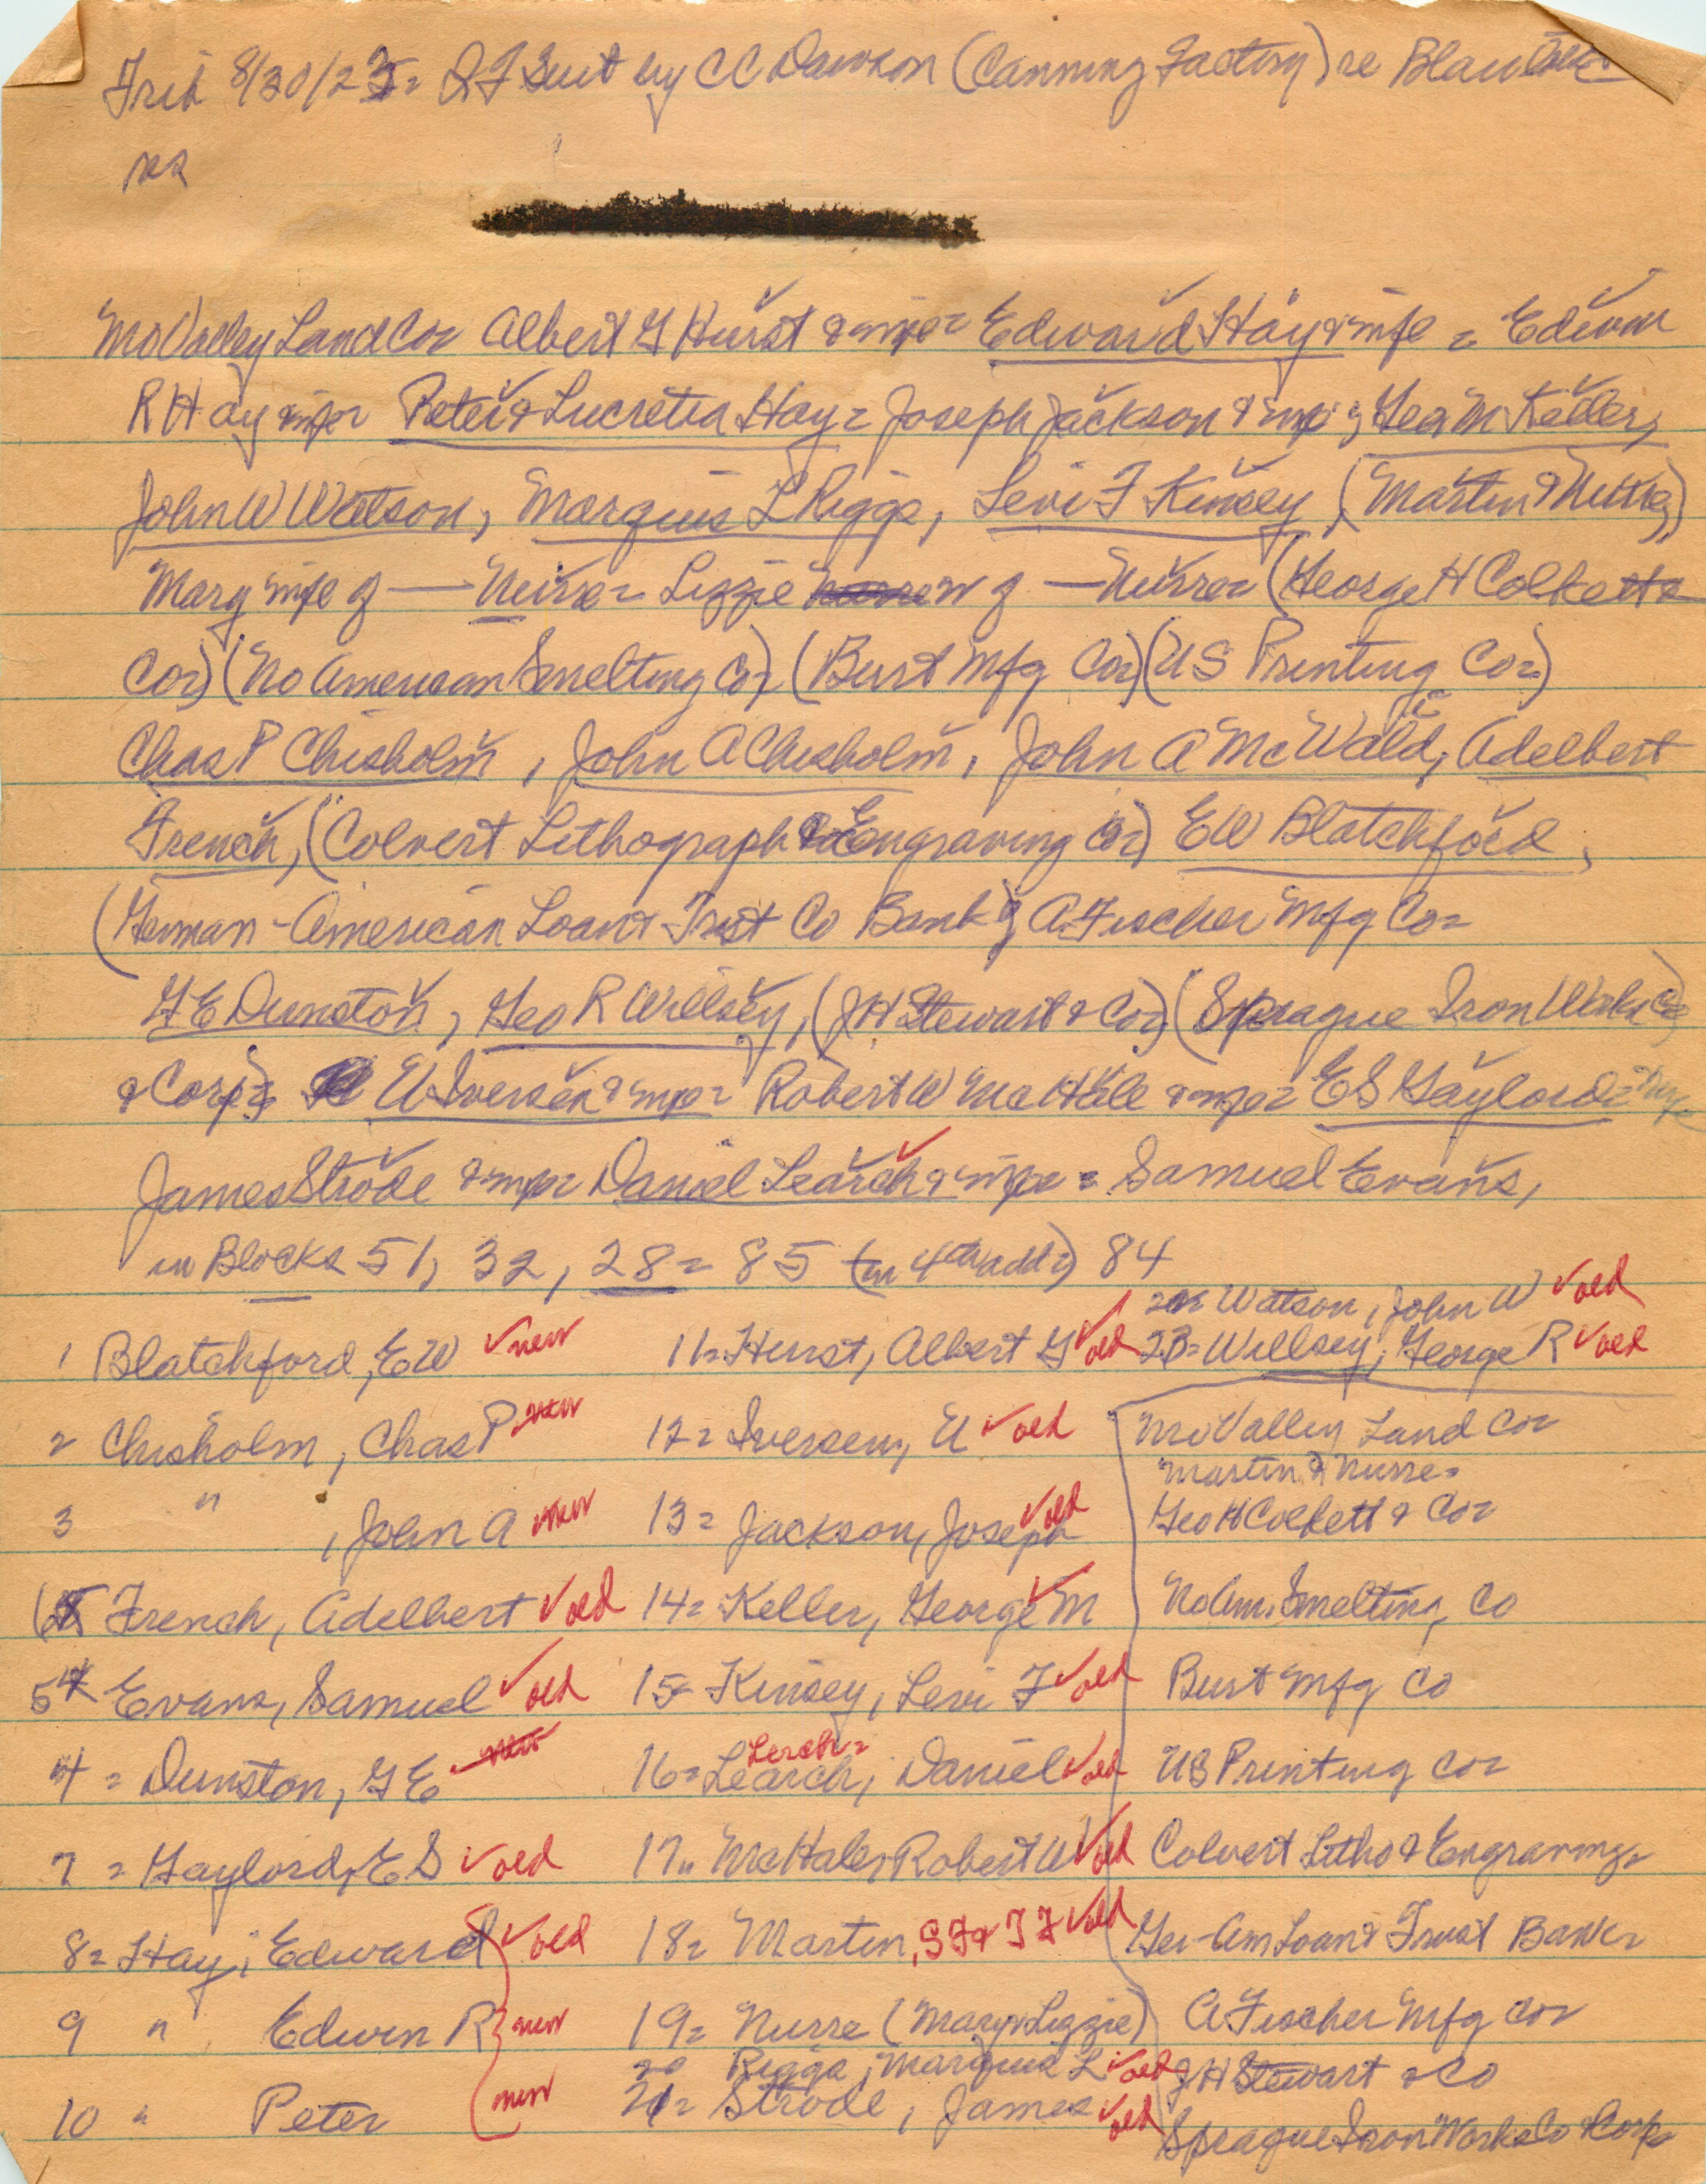 Trib 8/30/23= Q T Suit by C C Dawson (Canning Factory) re Blair
Mo Valley Land Co= Albert G Hurst & wife= Edward Hay & wife = Edwin
R Hay & wife= Peter & Lucretia Hay= Joseph Jackson & wife; Geo M Keller,
John W Watson, Marquis L Riggs, Levi F Kinsey, (Martin & Nurre)
Mary wife of — Nurre= Lizzie w of — Nurre= (George H Colkett &
Co=) (No American Smelting Co=) (Burt Mfg Co=) (US Printing Co=)
Chas P Chisholm, John A Chisholm, John A McWald, Adelbert
French, (Colvert Lithograph & Engraving Co=) E W Blatchford,
(German-American Loan & Trust Co Bank) A Fischer Mfg Co=
G E Dunston, Geo R Willsey, (J H Stewart & Co=) (Sprague Iron Works Co
& Corp= U Iversen & wife= Robert W McHale & wife= E S Gaylord = wife
James Strode & wife= Daniel Learch & wife = Samuel Evans,
in Blocks 51, 32, 28= 85 (in 4th add=) 84
22= Watson, John W ✓ old
1 Blatchford, E W ✓ new 11= Hurst, Albert G ✓ old 23= Willsey, George R ✓ old
2 Chisholm, Chas P new 12= Iversen, U ✓ old Mo Valley Land Co=
Martin & Nurre=
3 " , John A new 13= Jackson, Joseph ✓ old Geo H Colkett & Co=
6 French, Adelbert ✓ old 14= Keller, George M ✓ No Am. Smelting Co
5 Evans, Samuel ✓ old 15= Kinsey, Levi F ✓ old Burt Mfg Co
Lerch=
4 = Dunston, G E new 16= Learch, Daniel ✓ old US Printing Co=
7 = Gaylord, E S ✓ old 17= McHale, Robert W ✓ old Colvert Litho & Engraving=
8= Hay, Edward ✓ old 18= Martin, S F & T F ✓ old Ger-Am Loan & Trust Bank=
9 " Edwin R new 19= Nurre (Mary & Lizzie) A Fischer Mfg Co=
20 Riggs, Marquis L ✓ old J H Stewart & Co
10 " Peter new 21= Strode, James ✓ old Sprague Iron Works Co & Corp=